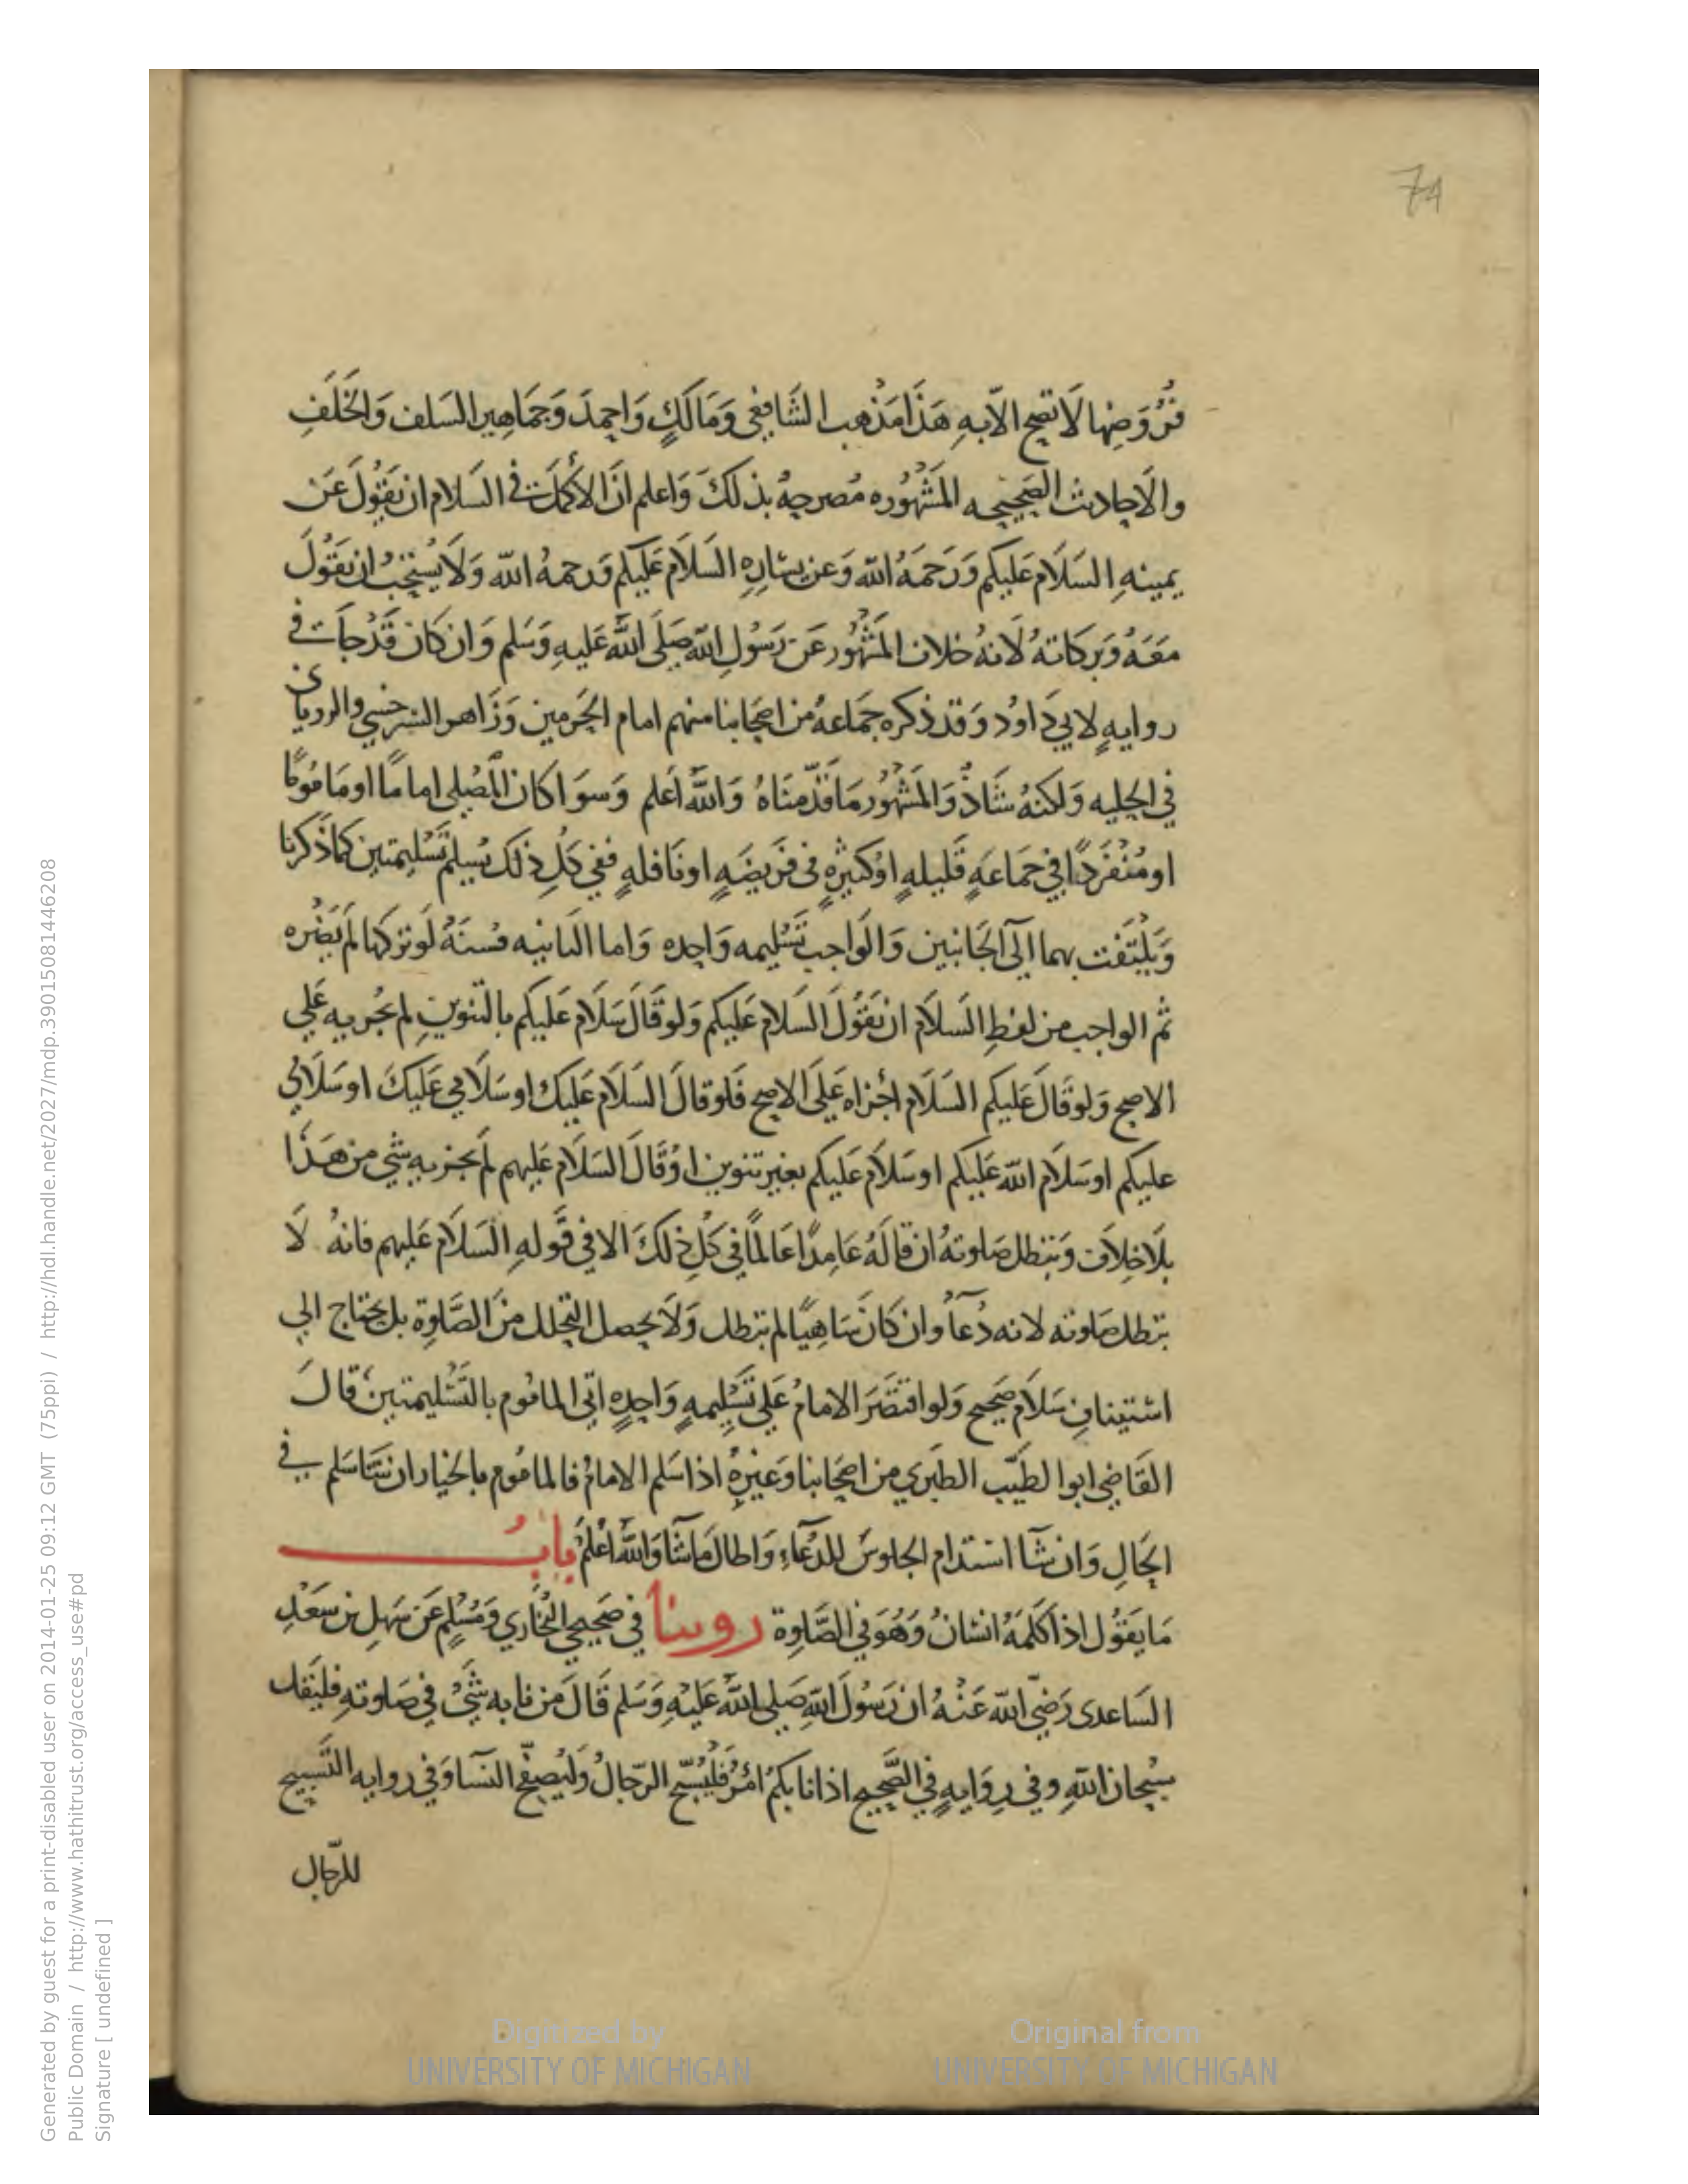 74
فُرُوَضِهَا لَا تصح الّا بهِ هَذَا مَذْهب الشَافِعِي وَمَالَكٍ وَاحمدَ وَجَمَاهِير السَلف وَالخَلَفِ
والَاحادِث الصَحِيحه المَشْهُوره مُصرحهُ بذلكَ وَاعلم انَ الأكمَلَ في السَلام ان يَقُولَ عَن
يمينهِ السَلَام عَليكم وَرَحمَهُ الله وَعن يسَارِهِ السَلَام عَلَيكم وَرحمهُ الله وَلَا يُستحَبُ ان يَقُولَ
مَعَهُ وَبَركَاتهُ لَانهُ خلاف المَشْهُور عَن رَسُول الله صَلى الله عَليهِ وَسَلم وَان كَان قَدْ جَات في
روايهٍ لابي دَاوُد وَقد ذكره جَمَاعهُ من اصحَابنا منهم امام الحَرمين وَزَاهر السَرخسي والرويانى
في الحليه وَلكنهُ شَاذٌ وَالمَشْهُور مَا قَدّمنَاهُ وَاللهُ اَعلم وَسوَا كَان المُصَلى اماماً او مَامُومًا
او مُنفَردًا في جَمَاعَهٍ قَليلهٍ اوْ كثيرِهٍ فى فَريضَهٍ او نَافلهٍ ففي كلِ ذلك يُسِلم تَسْليمتين كمَا ذَكرنا
وَيَلْتَفت بهما اليَ الجَانبين وَالوَاجب تَسْليمه وَاحده وَاما الثانيه فسنَهُ لَو تركها لم يَضُره
ثم الواجب من لفظِ السَلَام ان يَقُولَ السَلَام عَليكم وَلو قَالَ سَلَام عَليكم بالتنوينِ لم يجزيه عَلي
الاصح وَلو قَالَ عَليكم السَلَام اجُزاه عَلَى الاصح فَلو قالَ السَلَام عَليك او سَلَامي عَليكَ او سَلَامي
عليكم او سَلَام الله عَليكم او سَلَام عَليكم بغير تنوين اوُ قَالَ السَلَام عَليهم لَم يجزيه شي من هَذَا
بلَا خِلاَف وَتبطل صَلوتهُ ان قالَهُ عَامِدًا عَالمًا في كَلِ ذلكَ الا في قَولهِ السَلَام عَليهم فانهُ لَا
تبطل صَلوته لانه دُعَآ وان كَانَ سَاهِيًا لم تبطل وَلَا يحصل التحلل مِنَ الصَّلوة بل يحتاج الي
استينافِ سَلَام صَحيح وَلو اقتصَرَ الامامُ عَلى تَسْلِيمهٍ وَاحِدِهٍ اتي المامُوم بالتَسْليمتين قالَ
القَاضِي ابوا الطيَب الطبَري من اصحَابنا وَغيْرِهُ اذا سَلم الامامُ فالمامُوم بالخيار ان شَا سَلم في
الحَالِ وَان شَآ استدام الجلوسَ للدعَاءِ وَاطال مَا شَا وَاللهُ اَعْلمُ بابُ
مَا يَقُول اذا كلَمَهُ انسَانُ وَهُوَ في الصَّلوة روينا في صَحِيحي البُخَاري وَمُسْلمٍ عَن سَهلِ بن سَعْدِ
السَاعدى رَضيَ الله عَنْهُ ان رَسُولَ اللهِ صَلى اللهُ عَليْهِ وَسَلم قَالَ من نابه شَيُ في صَلوتهِ فليَقل
سُبحان اللهِ وفي رِوَايهٍ في الصَّحِيح اذا نابكمُ امُر فَليُسَبّح الرّجالُ وَليُصفّح النسَآ وَفي روايه التَسبيح
للرّجال
Digitized by UNIVERSITY OF MICHIGAN
Original from UNIVERSITY OF MICHIGAN
Generated by guest for a print-disabled user on 2014-01-25 09:12 GMT (75ppi) / http://hdl.handle.net/2027/mdp.39015081446208
Public Domain / http://www.hathitrust.org/access_use#pd
Signature [ undefined ]